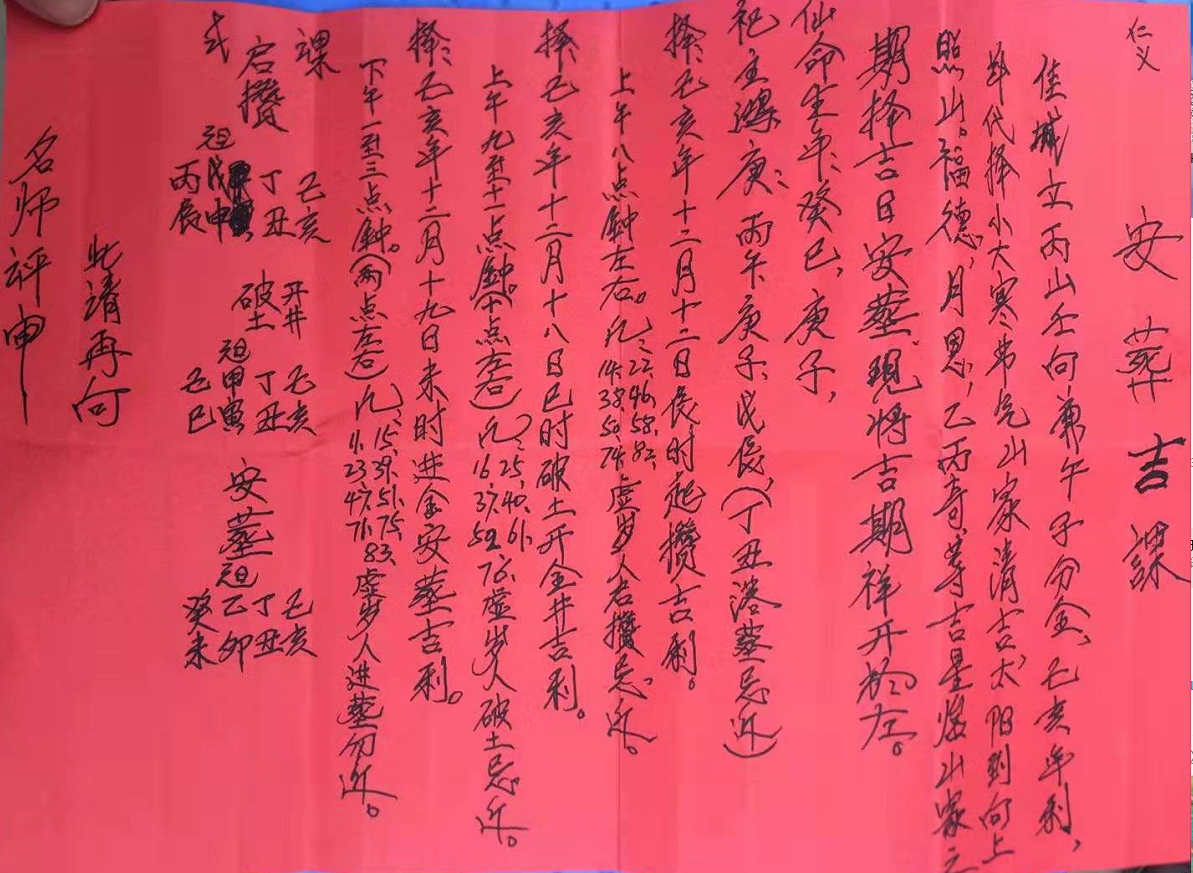 仁义
安葬吉課
佳城立丙山壬向兼午子分金，己亥年利，
年代择小大寒节气山家清吉，太阳到向上
照山。福德，月恩，乙丙奇，等吉星临山家之
期择吉日安葬，现将吉期祥开于左。
仙命生年：癸巳，庚子，
祀主： 庚，丙午，庚子，戊辰，(丁丑落葬忌近)
择：己亥年十二月十二日辰时起攒吉利。
上午八点钟左右。凡：22.46.58.82.
14.38.50.74.虚岁人启攒忌近。
择己亥年十二月十八日巳时破土开金井吉利。
上午九至十一点鈡(十点左右)凡：25.40.61.
16.37.52.76.虚岁人破土忌近。
择：己亥年十二月十九日未时进金安葬吉利。
下午一至三点鈡。(两点左右)凡：15.39.51.75.
11.23.47.71.83.虚岁人进葬勿近。
課式
启攒 己亥 丁丑 戊申 丙辰
开井破土 己亥 丁丑 甲寅 己巳
安葬 己亥 丁丑 乙卯 癸未
此請再向
名师评申